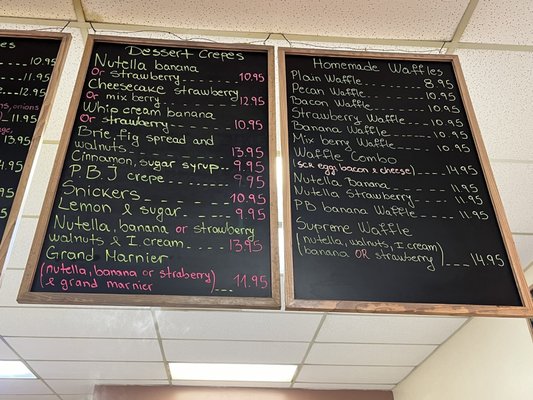 10.95
11.95
12.95
ons, onions
13.95
14.95
5
Dessert Crepes
Nutella banana
Or strawberry 10.95
Cheesecake strawberry
Or mix berry 12.95
Whip cream banana
Or strawberry 10.95
Brie, fig spread and
walnuts 13.95
Cinnamon, sugar syrup 9.95
P.B.J crepe 9.95
Snickers 10.95
Lemon & sugar 9.95
Nutella, banana or strawberry
walnuts & I cream 13.95
Grand Marnier
(nutella, banana or straberry)
& grand marnier 11.95
Homemade Waffles
Plain Waffle 8.95
Pecan Waffle 10.95
Bacon Waffle 10.95
Strawberry Waffle 10.95
Banana Waffle 10.95
Mix berry Waffle 10.95
Waffle Combo
(scr egg, bacon & cheese) 14.95
Nutella Banana 11.95
Nutella Strawberry 11.95
PB banana Waffle 11.95
Supreme Waffle
(nutella, walnuts, I cream)
(banana OR strawberry) 14.95